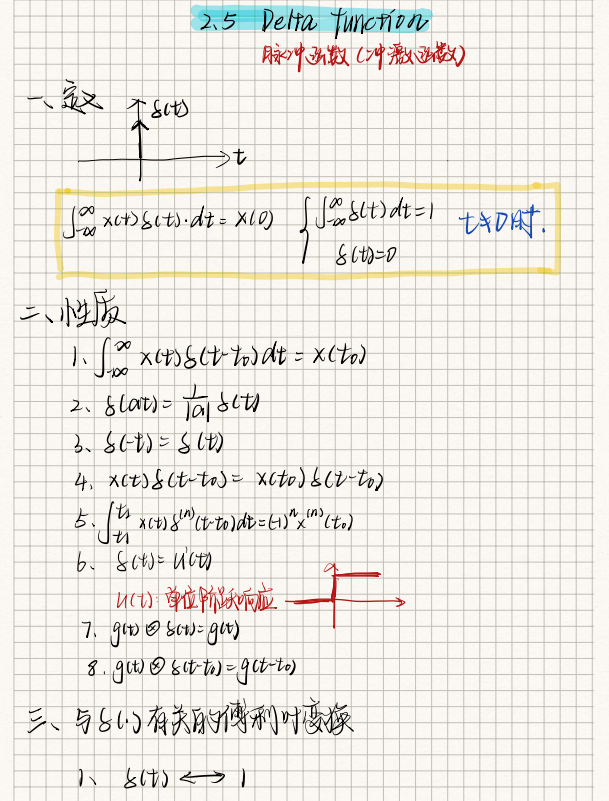 2.5 Delta function
脉冲函数(冲激函数)
一、定义
δ(t)
t
∫_{-∞}^{∞} x(t)δ(t)·dt = x(0) { ∫_{-∞}^{∞} δ(t)dt=1
δ(t)=0 t≠0时.
二、性质
1、∫_{-∞}^{∞} x(t)δ(t-t₀)dt = x(t₀)
2、δ(at) = 1/|a| δ(t)
3、δ(-t) = δ(t)
4、x(t)δ(t-t₀) = x(t₀)δ(t-t₀)
5、∫_{t1}^{t2} x(t)δ^{(n)}(t-t₀)dt=(-1)^n x^{(n)}(t₀)
6、δ(t)= u'(t)
u(t): 单位阶跃响应
7、g(t)⊗δ(t)=g(t)
8、g(t)⊗δ(t-t₀)=g(t-t₀)
三、与δ(·)有关的傅利叶变换
1、δ(t) ⟷ 1